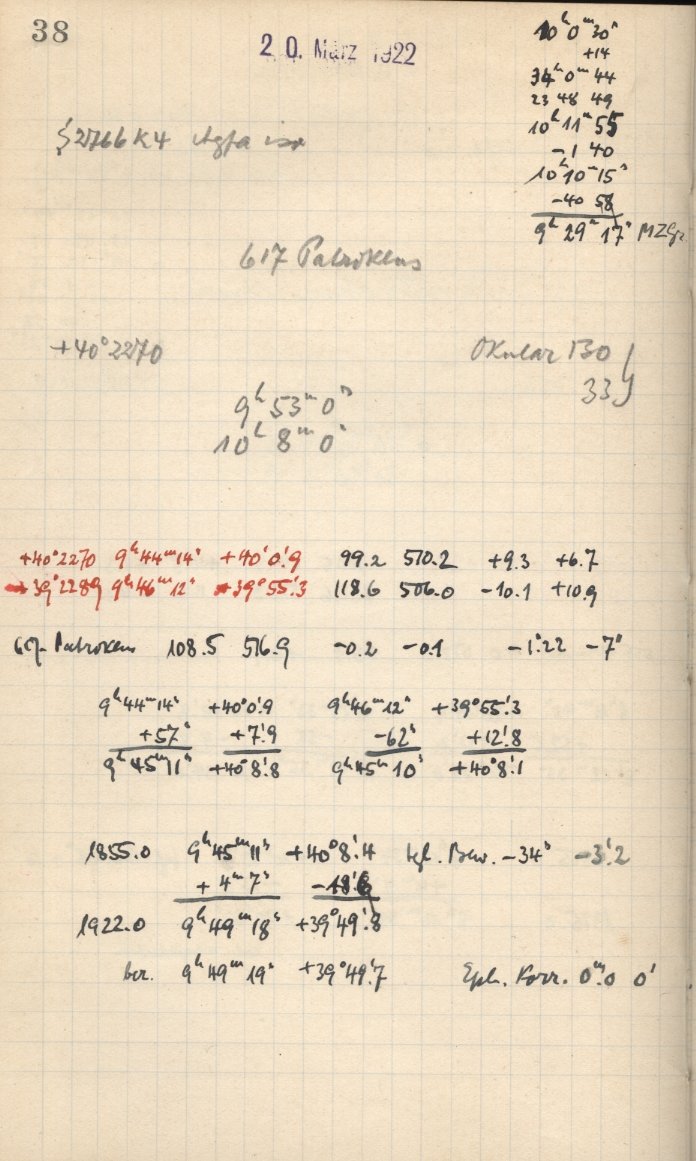 38
20. März 1922
10ʰ 0ᵐ 30ˢ
+14
34ʰ 0ᵐ 44
23 48 49
10ʰ 11ᵐ 55
-1 40
10ʰ 10ᵐ 15ˢ
-40 58
9ʰ 29ᵐ 17ˢ MZGr.
2766 K4 Agfa iso
617 Patroklus
+40°2270 Okular 130
33
9ʰ 53ᵐ 0ˢ
10ʰ 8ᵐ 0ˢ
+40°2270 9ʰ44ᵐ14ˢ +40°0'.9 99.2 510.2 +9.3 +6.7
39°2289 9ʰ46ᵐ12ˢ 39°55'.3 118.6 506.0 -10.1 +10.9
617 Patroklus 108.5 516.9 -0.2 -0.1 -1ˢ.22 -7"
9ʰ44ᵐ14ˢ +40°0'.9 9ʰ46ᵐ12ˢ +39°55'.3
+57ˢ +7'.9 -62ˢ +12'.8
9ʰ45ᵐ11ˢ +40°8'.8 9ʰ45ᵐ10ˢ +40°8'.1
1855.0 9ʰ45ᵐ11ˢ +40°8'.4 tgl. Bew. -34ˢ -3'.2
+4ᵐ7ˢ -18'.6
1922.0 9ʰ49ᵐ18ˢ +39°49'.8
ber. 9ʰ49ᵐ19ˢ +39°49'.7 Eph. Korr. 0ᵐ.0 0'